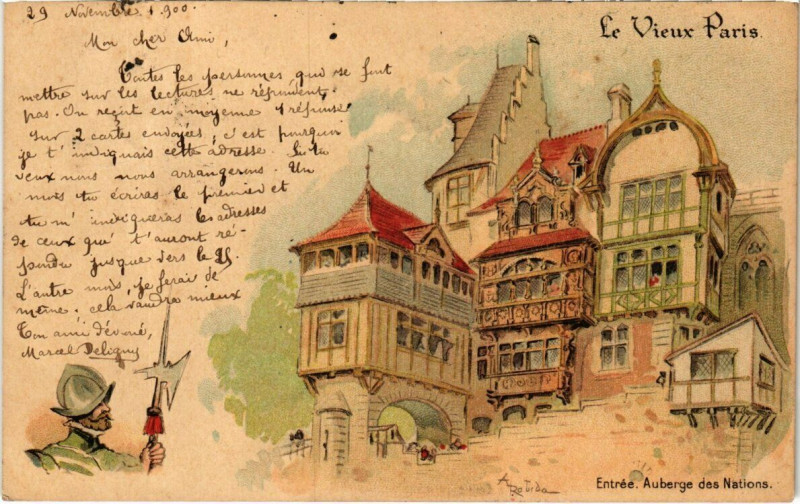 29 Novembre 1900.
Mon cher Ami,
Toutes les personnes qui se font
mettre sur les lectures ne répondent
pas. On reçoit en moyenne 1 réponse
sur 2 cartes envoyées, c'est pourquoi
je t'indiquais cette adresse. Si tu
veux nous nous arrangerons. Un
mois tu écriras le premier et
tu m'indiqueras les adresses
de ceux qui t'auront ré-
pondu jusque vers le 25.
L'autre mois, je ferai de
même. cela vaudra mieux
Ton ami dévoué,
Marcel Deligny
Le Vieux Paris.
A. Robida
Entrée. Auberge des Nations.